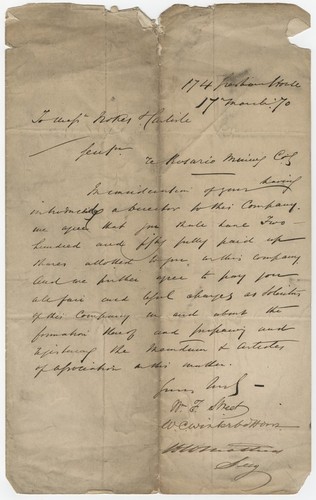 174 Gresham House
17th March. 70
To Messrs Nokes & Carlisle
Gentn
re Rosario Mining Coy
In consideration of your having
introduced a Director to this Company
we agree that you shall have Two
hundred and fifty fully paid up
shares allotted to you in this Company
And we further agree to pay you
all fair and lawful charges as Solicitors
of this Company in and about the
formation thereof and preparing and
Registering the Memdum & Articles
of Association in this matter.
Yours truly
W. F. Street
W. C. Winterbottom
Secy